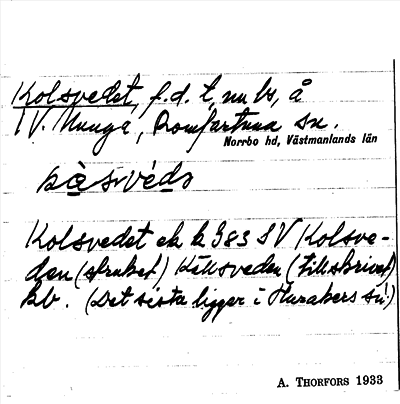 Kolsvedet, f.d. t, nu ls, å
V. Munga, Romfartuna sn.
Norrbo hd, Västmanlands län
Kolsvedet ek k 983 SV Kolsve-
den (struket) Killsveden (tillskrivet)
bb. (Det sista ligger i Harakers sn!)
A. THORFORS 1933